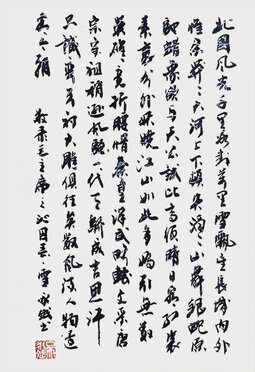 北国风光千里冰封万里雪飘望长城内外
惟余莽莽大河上下顿失滔滔山舞银蛇原
驰蜡象欲与天公试比高须晴日看红装
素裹分外妖娆江山如此多娇引无数
英雄竞折腰惜秦皇汉武略输文采唐
宗宋祖稍逊风骚一代天骄成吉思汗
只识弯弓射大雕俱往矣数风流人物还
看今朝 敬录毛主席之沁园春雪